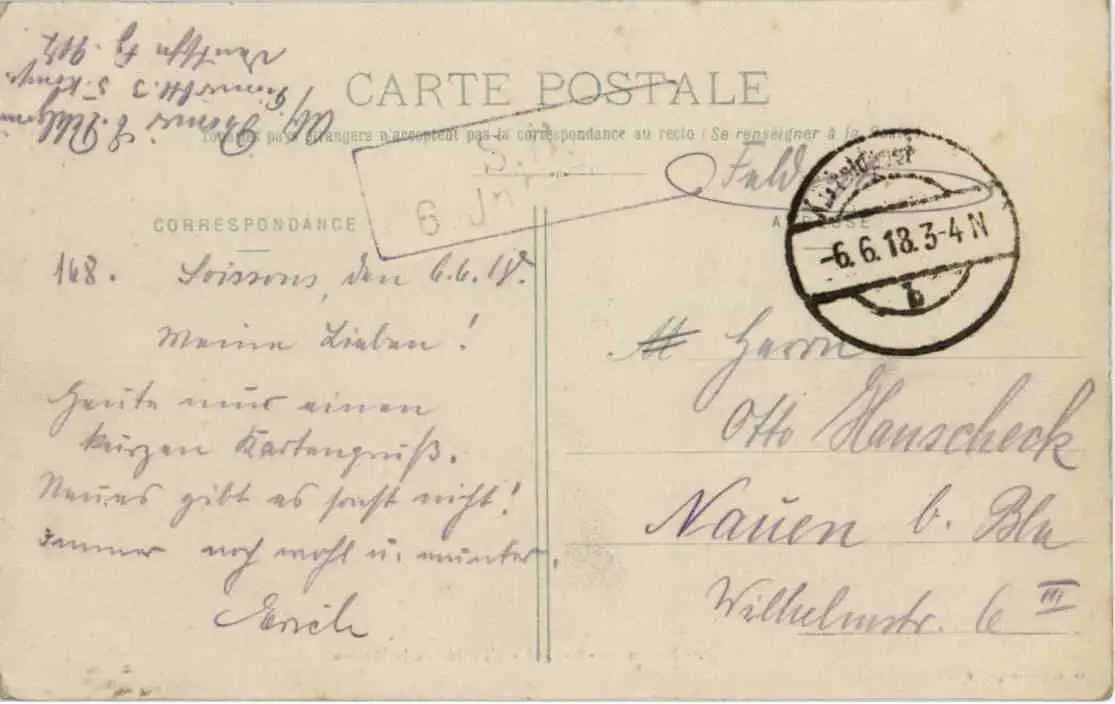 CARTE POSTALE
Tous les pays étrangers n'acceptent pas la correspondance au recto (Se renseigner à la Poste)
S. B.
6. In
Feld
K.D. Feldpost
-6.6.18.3-4 N
b
CORRESPONDANCE
168. Soissons, den 6.6.18.
Meine Lieben!
Heute nur einen
kurzen Kartengruß.
Neues gibt es sonst nicht!
Immer noch wohl u. munter.
Erich
ADRESSE
Herrn
Otto Hanscheck
Nauen b. Bln
Wilhelmstr. 6 III